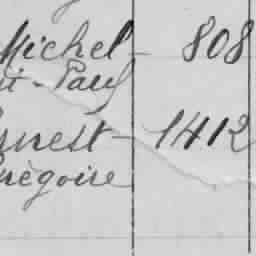 Michel - 808
it-Paul
rnest - 1412
régoire